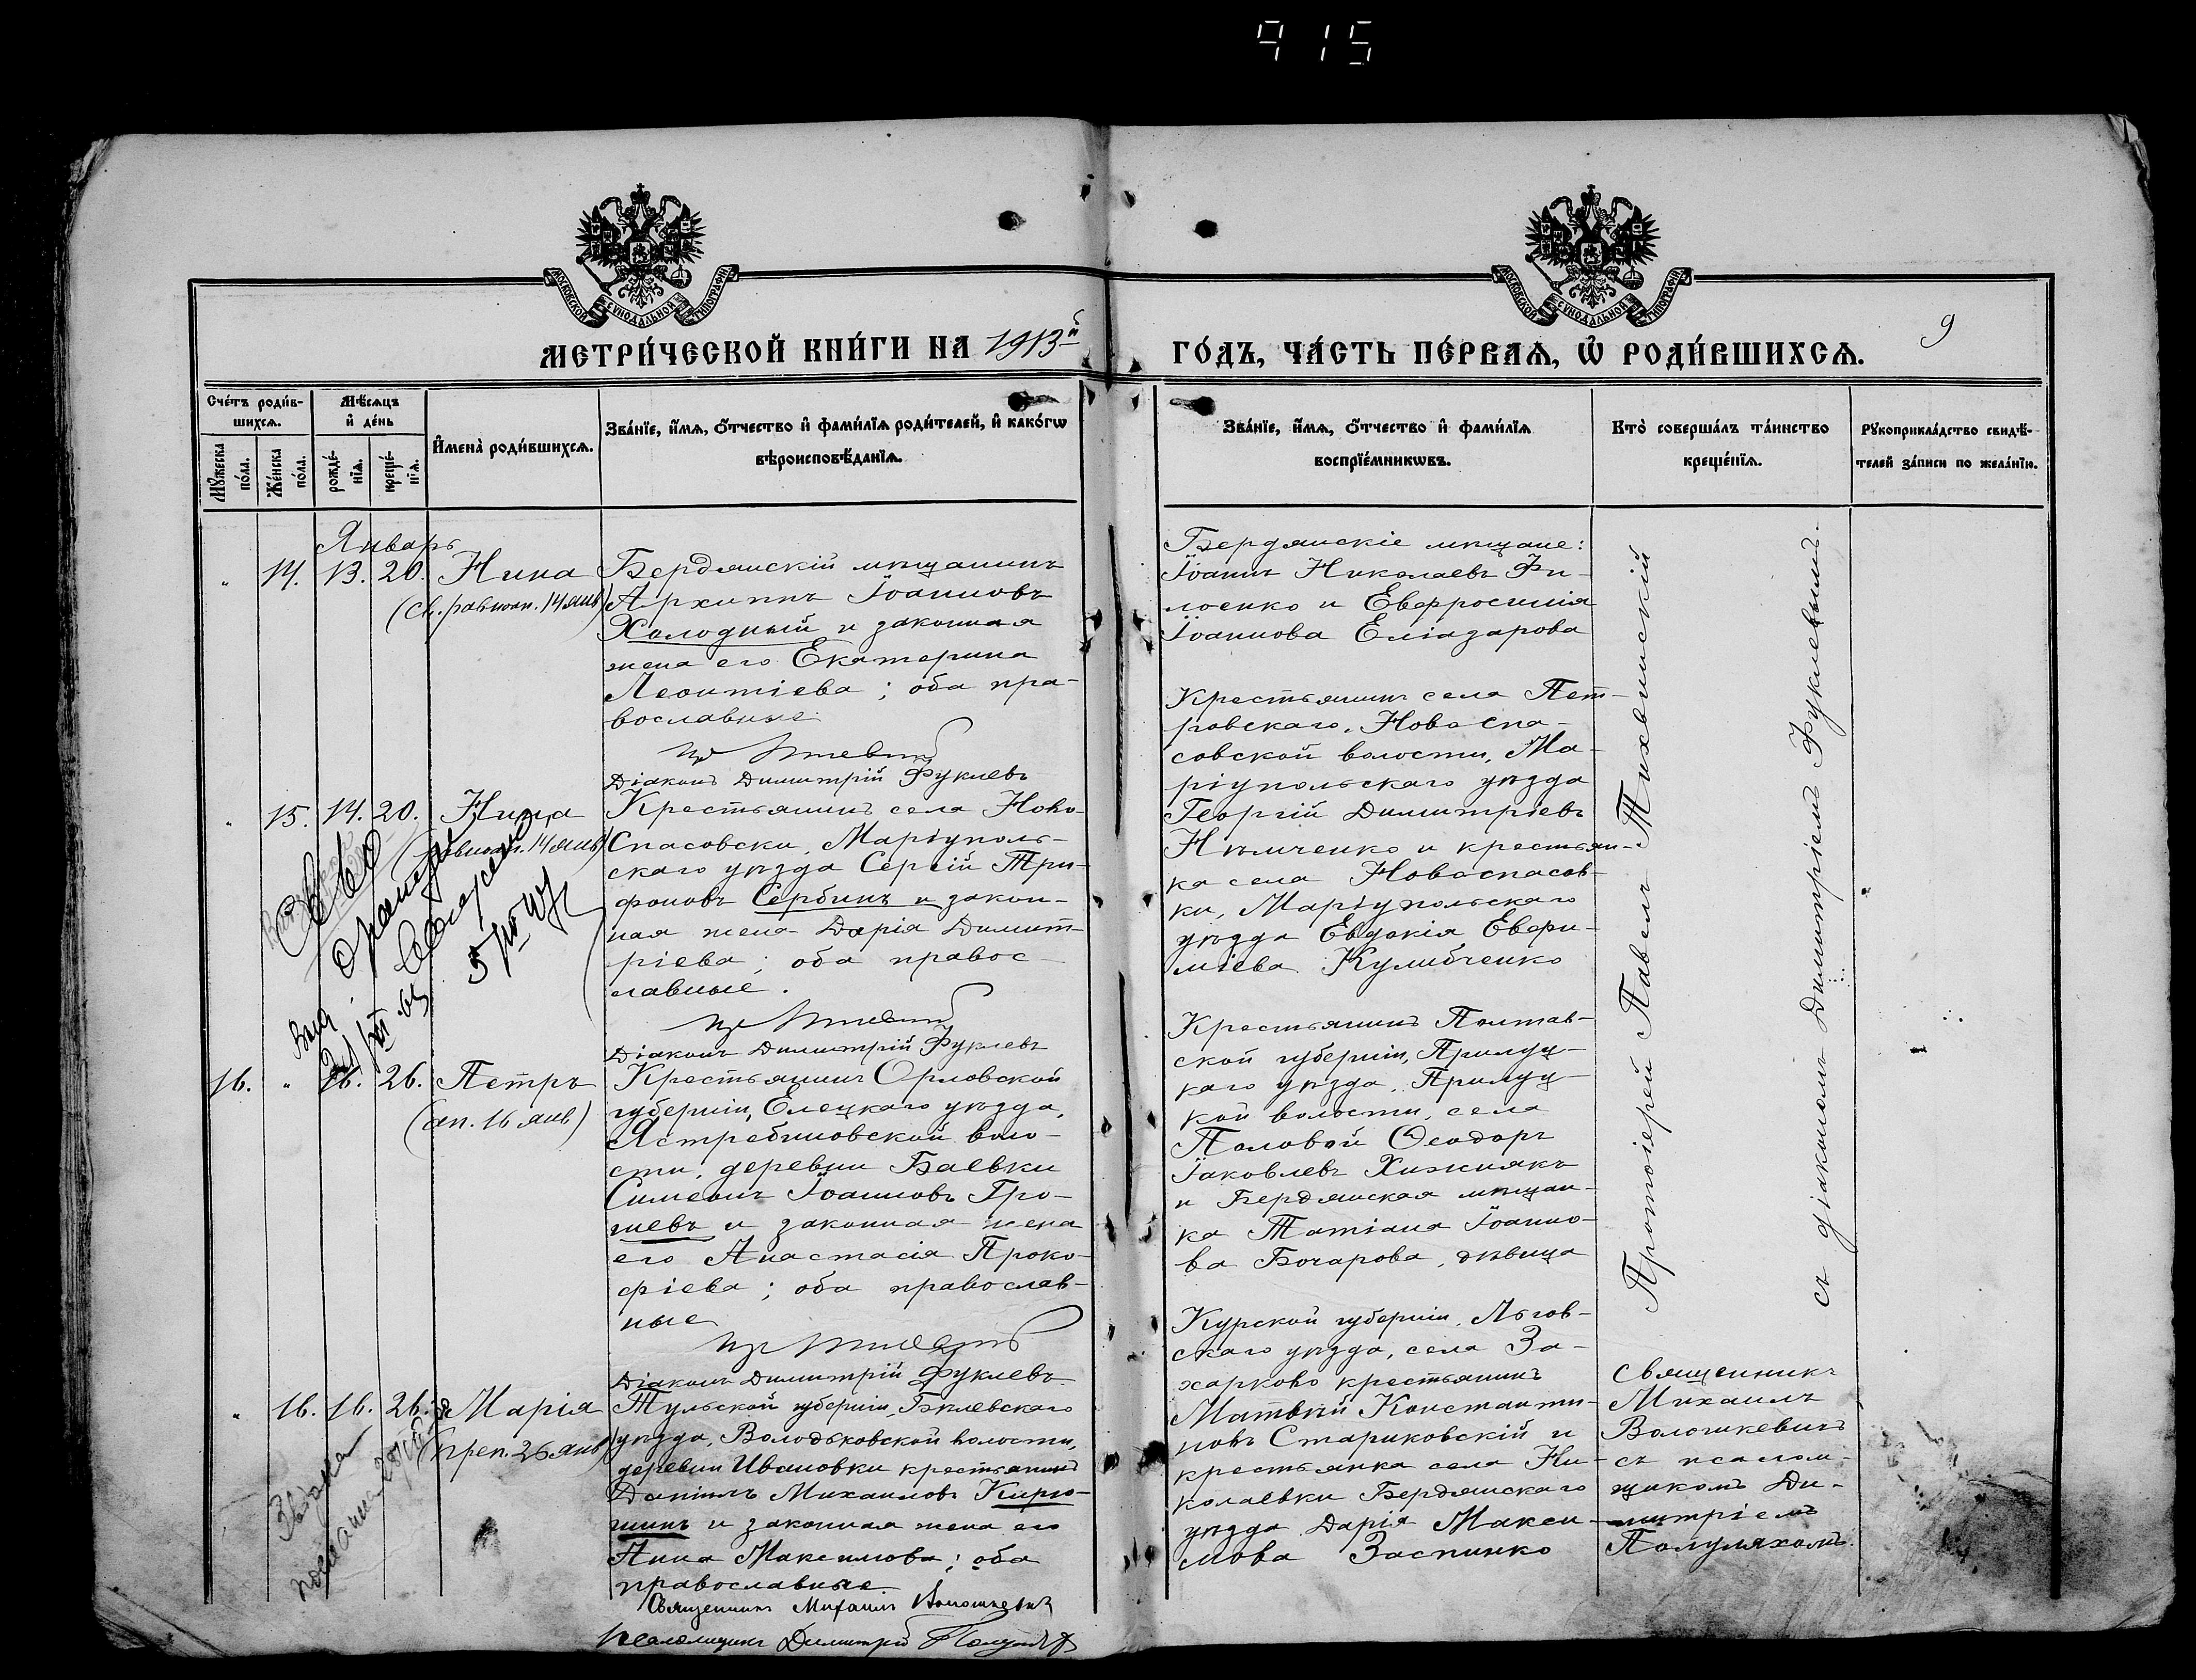 915
МОСКОВСКОЙ СѴНОДАЛЬНОЙ ТИПОГРАФІИ
МОСКОВСКОЙ СѴНОДАЛЬНОЙ ТИПОГРАФІИ
МЕТРИ́ЧЕСКОЙ КНИ́ГИ НА 1913й
ГО́ДЪ, ЧА́СТЬ ПЕ́РВАѦ, Ѡ҆ РОДИ́ВШИХСѦ.
9
Сче́тъ роди́в-
шихсѧ.
Мꙋ́жеска по́ла.
Же́нска по́ла.
Мѣ́сѧцъ
и҆ де́нь
рожде́-
нїѧ.
креще́-
нїѧ.
И҆мена̀ роди́вшихсѧ.
Зва́нїе, и҆́мѧ, ѻ҆́тчество и҆ фами́лїѧ роди́телей, и҆ како́гѡ
вѣроисповѣ́данїѧ.
Зва́нїе, и҆́мѧ, ѻ҆́тчество и҆ фами́лїѧ
воспрїе́мникѡвъ.
Кто̀ соверша́лъ та́инство
креще́нїѧ.
Рꙋкоприкла́дство свидѣ́-
телей за́писи по жела́нїю.
Январь
" 14. 13. 20. Нина
(св. равноап. 14 янв)
Бердянскій мѣщанинъ
Архиппъ Іоанновъ
Холодный и законная
жена его Екатерина
Леонтіева; оба пра-
вославные
Діаконъ Димитрій Фуклевъ
Бердянскіе мѣщане:
Іоаннъ Николаевъ Фи-
лоенко и Евфросинія
Іоаннова Еліазарова
" 15. 14. 20. Нина
(равноап. 14 янв)
Крестьянинъ села Ново-
Спасовки, Маріуполь-
скаго уѣзда Сергій Три-
фоновъ Сербинъ и закон-
ная жена Дарія Димит-
ріева; оба правос-
лавные.
Діаконъ Димитрій Фуклевъ
Крестьянинъ села Пет-
ровскаго, Новоспа-
совской волости, Ма-
ріупольскаго уѣзда
Георгій Димитріевъ
Нѣмченко и крестьян-
ка села Новоспасов-
ки, Маріупольскаго
уѣзда Евдокія Евфи-
міева Кулибченко
16. " 16. 26. Петръ
(ап. 16 янв)
Крестьянинъ Орловской
губерніи, Елецкаго уѣзда,
Ястребиновской воло-
сти, деревни Баевки
Симеонъ Іоанновъ Гро-
шевъ и законная жена
его Анастасія Проко-
фіева; оба православ-
ные
Діаконъ Димитрій Фуклевъ
Крестьянинъ Полтав-
ской губерніи, Прилуц-
каго уѣзда, Прилуц-
кой волости, села
Половой Ѳеодоръ
Іаковлевъ Хижнякъ
и Бердянская мѣщан-
ка Татіана Іоанно-
ва Бочарова, дѣвица
Протоіерей Павелъ Тихвинскій
съ діакономъ Димитріемъ Фуклевымъ.
" 16. 16. 26. Марія
(преп. 26 янв)
Тульской губерніи, Бѣлевскаго
уѣзда, Володьковской волости,
деревни Ивановки крестьянинъ
Даніилъ Михаиловъ Кирю-
шинъ и законная жена его
Анна Максимова; оба
православные.
Священникъ Михаилъ Волошкевичъ
Псаломщикъ Димитрій
Курской губерніи, Льгов-
скаго уѣзда, села За-
харково крестьянинъ
Матѳій Константи-
новъ Стариковскій и
крестьянка села Ни-
колаевки Бердянскаго
уѣзда Дарія Макси-
мова Заспинко
Священникъ
Михаилъ
Волошкевичъ
съ псалом-
щикомъ Ди-
митріемъ
Полуляхомъ.